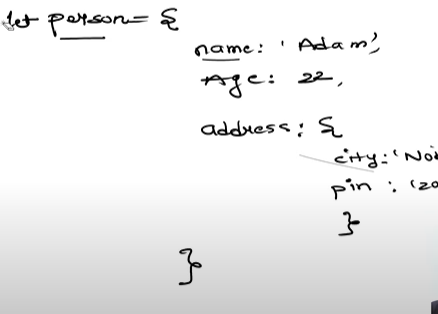 let person = {
name: 'Adam',
Age: 22,
address: {
city: 'Noi
pin : '20
}
}